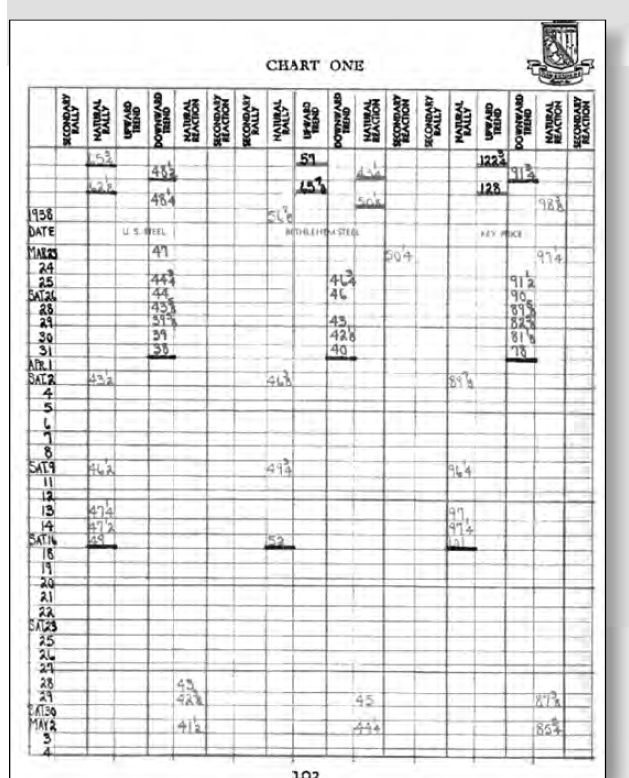 CHART ONE
SECONDARY RALLY NATURAL RALLY UPWARD TREND DOWNWARD TREND NATURAL REACTION SECONDARY REACTION SECONDARY RALLY NATURAL RALLY UPWARD TREND DOWNWARD TREND NATURAL REACTION SECONDARY REACTION SECONDARY RALLY NATURAL RALLY UPWARD TREND DOWNWARD TREND NATURAL REACTION SECONDARY REACTION
57
48 1/2 91 3/4
62 1/8 128
48 1/4 50 1/8
1938 56 7/8 98 3/8
DATE U.S. STEEL BETHLEHEM STEEL KEY PRICE
MAR23 47 50 1/4 97 1/4
24
25 44 3/4 46 3/4 91 1/2
SAT.26 44 46 90
28 43 5/8 89 5/8
29 39 5/8 43 82 5/8
30 39 42 1/8 81 1/8
31 38 40 78
APR.1
SAT.2 43 1/2 46 3/8 89 7/8
4
5
6
7
8
SAT.9 46 1/2 49 3/4 96 1/4
11
12
13 47 1/4 97
14 47 1/2 97 1/4
SAT.16 49 52 101
18
19
20
21
22
SAT.23
25
26
27
28 43
29 42 3/8 45 87 3/8
SAT.30
MAY 2 41 1/2 44 1/4 85 3/4
3
4
102